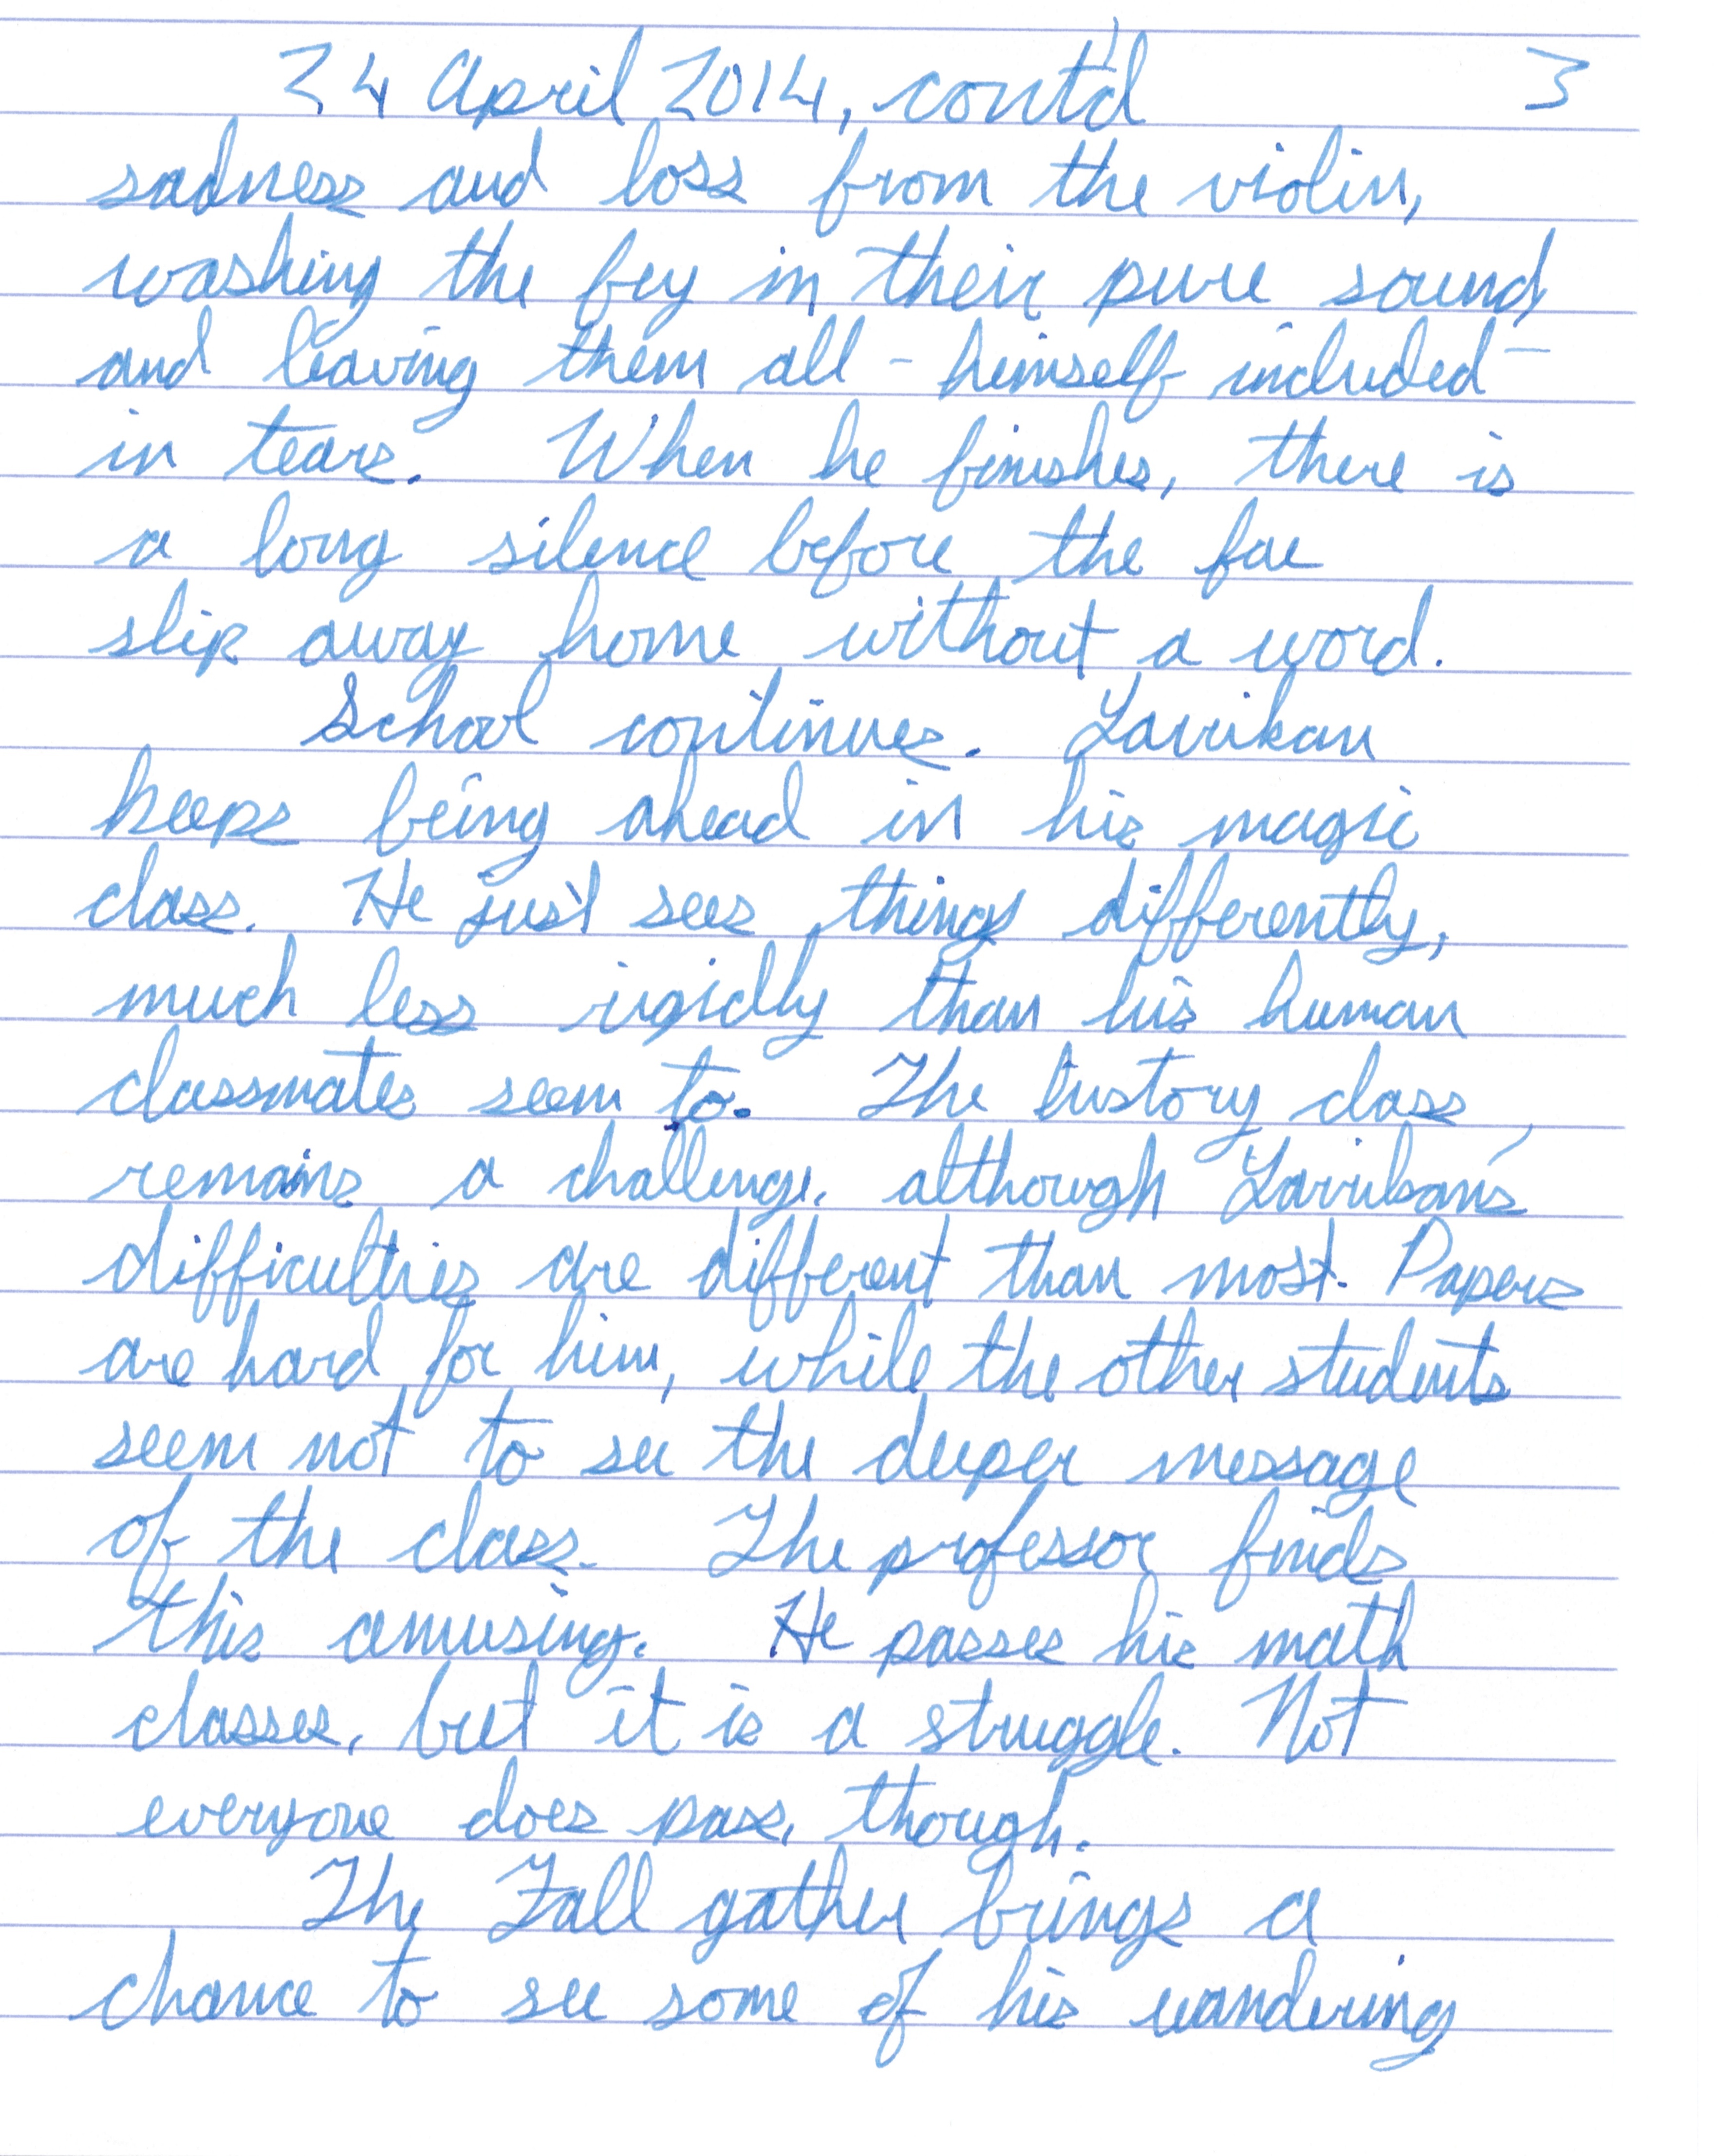 24 April 2014, cont'd 3
sadness and loss from the violin,
washing the fey in their pure sound,
and leaving them all - himself included -
in tears. When he finishes, there is
a long silence before the fae
slip away home without a word.
School continues. Lavrikan
keeps being ahead in his magic
class. He just sees things differently,
much less rigidly than his human
classmates seem to. The history class
remains a challenge, although Lavrikan's
difficulties are different than most. Papers
are hard for him, while the other students
seem not to see the deeper message
of the class. The professor finds
this amusing. He passes his math
classes, but it is a struggle. Not
everyone does pass, though.
The Fall gather brings a
chance to see some of his wandering